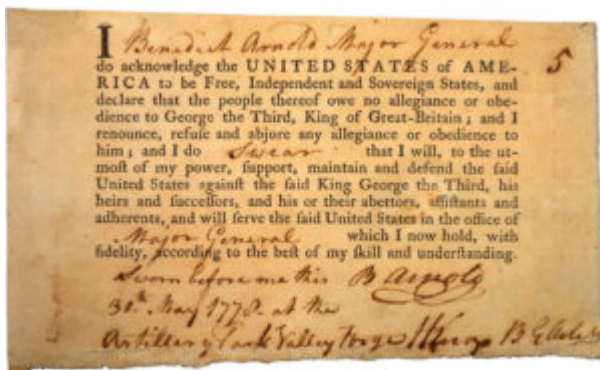 I Benedict Arnold Major General
do acknowledge the UNITED STATES of AME-
RICA to be Free, Independent and Sovereign States, and
declare that the people thereof owe no allegiance or obe-
dience to George the Third, King of Great-Britain; and I
renounce, refuſe and abjure any allegiance or obedience to
him; and I do Swear that I will, to the ut-
moſt of my power, ſupport, maintain and defend the ſaid
United States againſt the ſaid King George the Third, his
heirs and ſucceſſors, and his or their abettors, aſſiſtants and
adherents, and will ſerve the ſaid United States in the office of
Major General which I now hold, with
fidelity, according to the beſt of my ſkill and underſtanding.
Sworn before me this B Arnold
30th May 1778 at the
Artillery Park Valley Forge HKnox
5